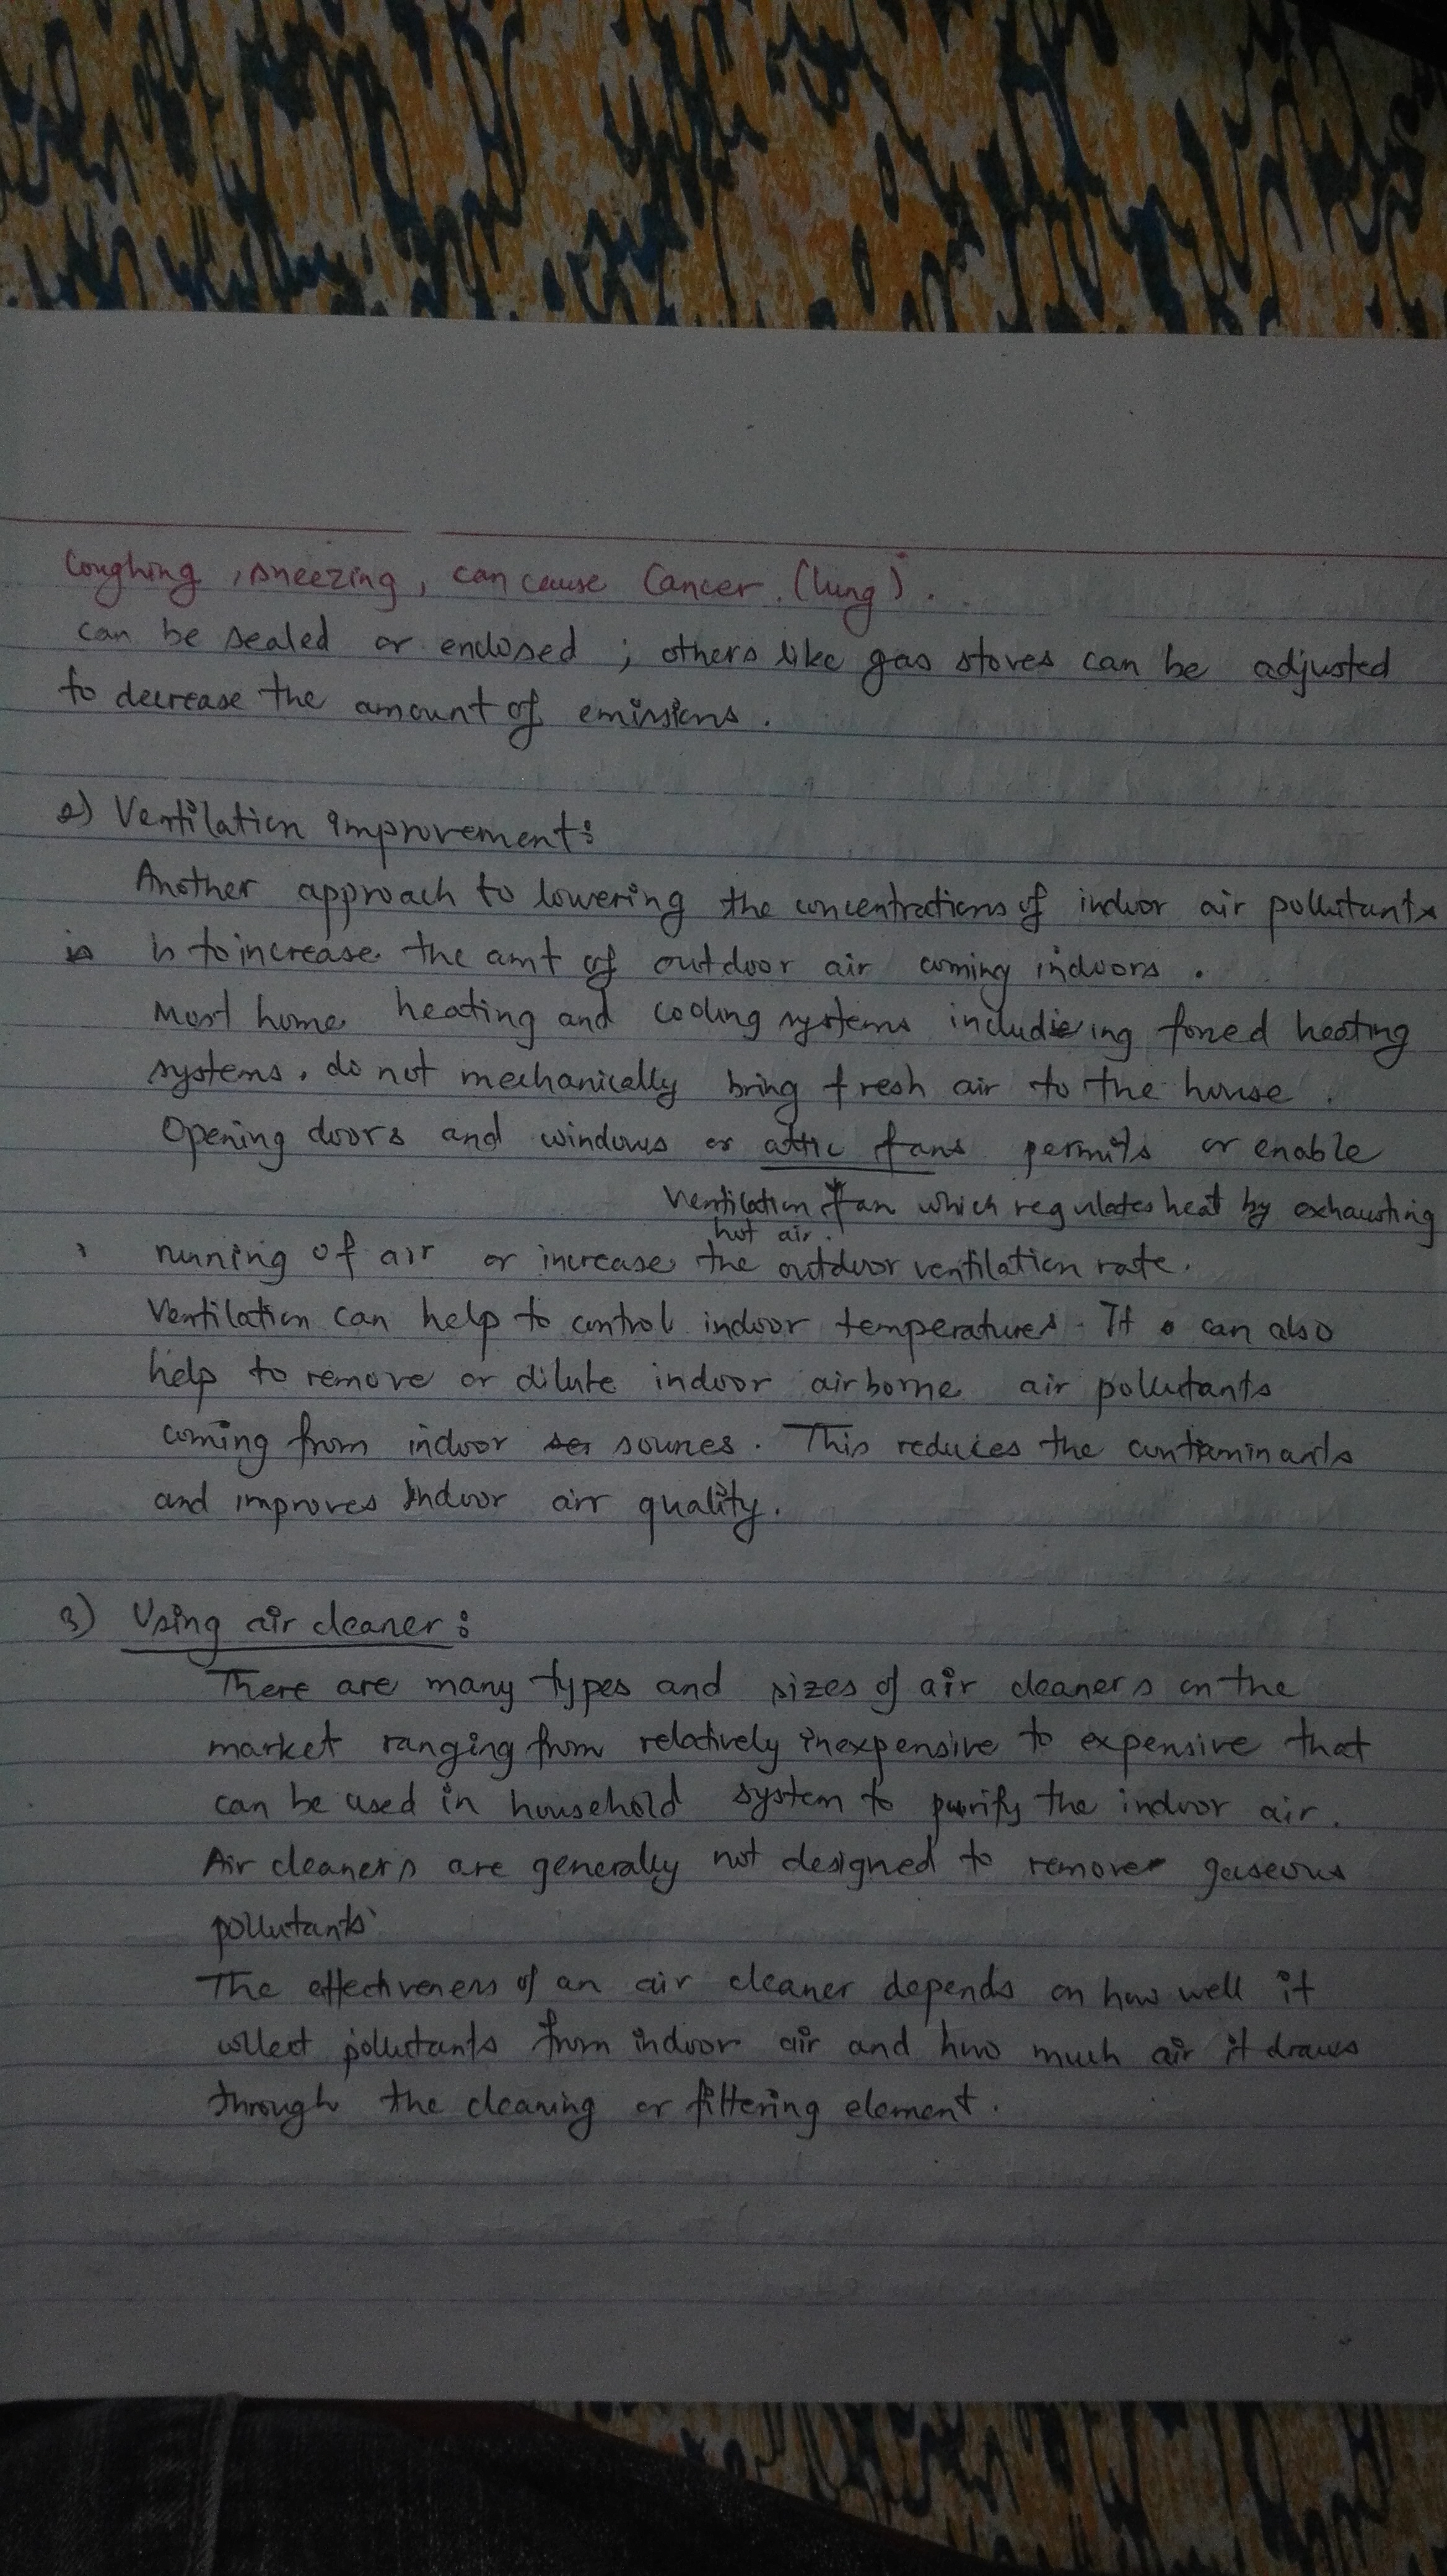 Coughing, sneezing, can cause Cancer. (lung).
can be sealed or enclosed ; others like gas stoves can be adjusted
to decrease the amount of emissions.
2) Ventilation improvement:
Another approach to lowering the concentrations of indoor air pollutants
is is to increase the amt of outdoor air coming indoors.
Most home heating and cooling systems including forced heating
systems, do not mechanically bring fresh air to the house.
Opening doors and windows or attic fans permits or enable
Ventilation fan which regulates heat by exhausting
hot air.
running of air or increase the outdoor ventilation rate.
Ventilation can help to control indoor temperatures. It can also
help to remove or dilute indoor airborne air pollutants
coming from indoor sources. This reduces the contaminants
and improves indoor air quality.
3) Using air cleaner:
There are many types and sizes of air cleaners on the
market ranging from relatively inexpensive to expensive that
can be used in household system to purify the indoor air.
Air cleaners are generally not designed to remove gaseous
pollutants
The effectiveness of an air cleaner depends on how well it
collect pollutants from indoor air and how much air it draws
through the cleaning or filtering element.